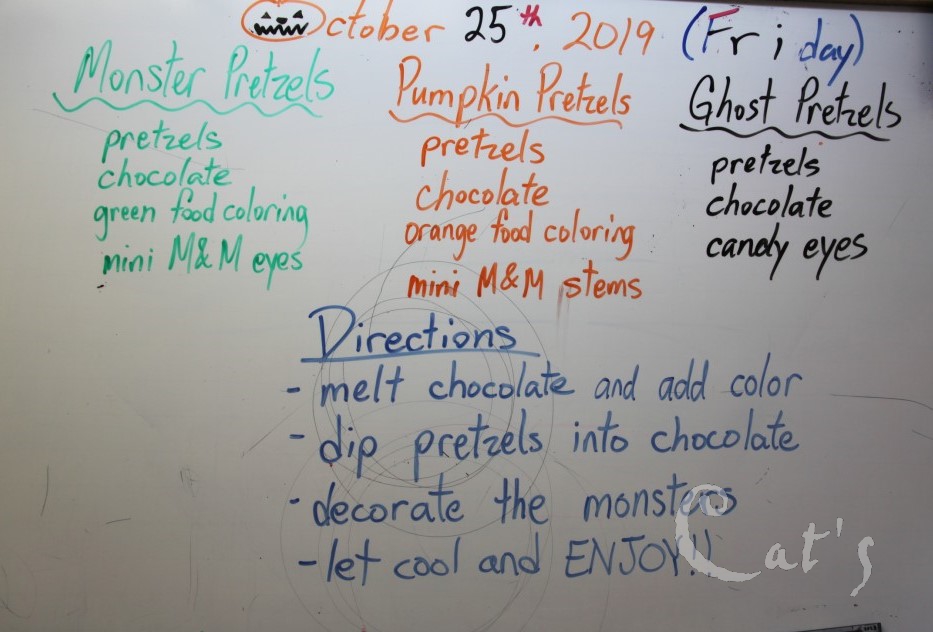 October 25th, 2019 (Friday)
Monster Pretzels
pretzels
chocolate
green food coloring
mini M&M eyes
Pumpkin Pretzels
pretzels
chocolate
orange food coloring
mini M&M stems
Ghost Pretzels
pretzels
chocolate
candy eyes
Directions
- melt chocolate and add color
- dip pretzels into chocolate
- decorate the monsters
- let cool and ENJOY!!
Cat's